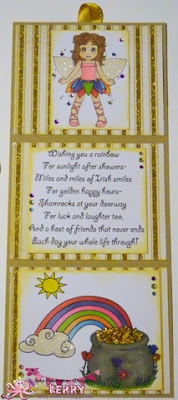 Wishing you a rainbow
For sunlight after showers-
Miles and miles of Irish smiles
For golden happy hours-
Shamrocks at your doorway
For luck and laughter too,
And a host of friends that never ends
Each day your whole life through!
KERRY